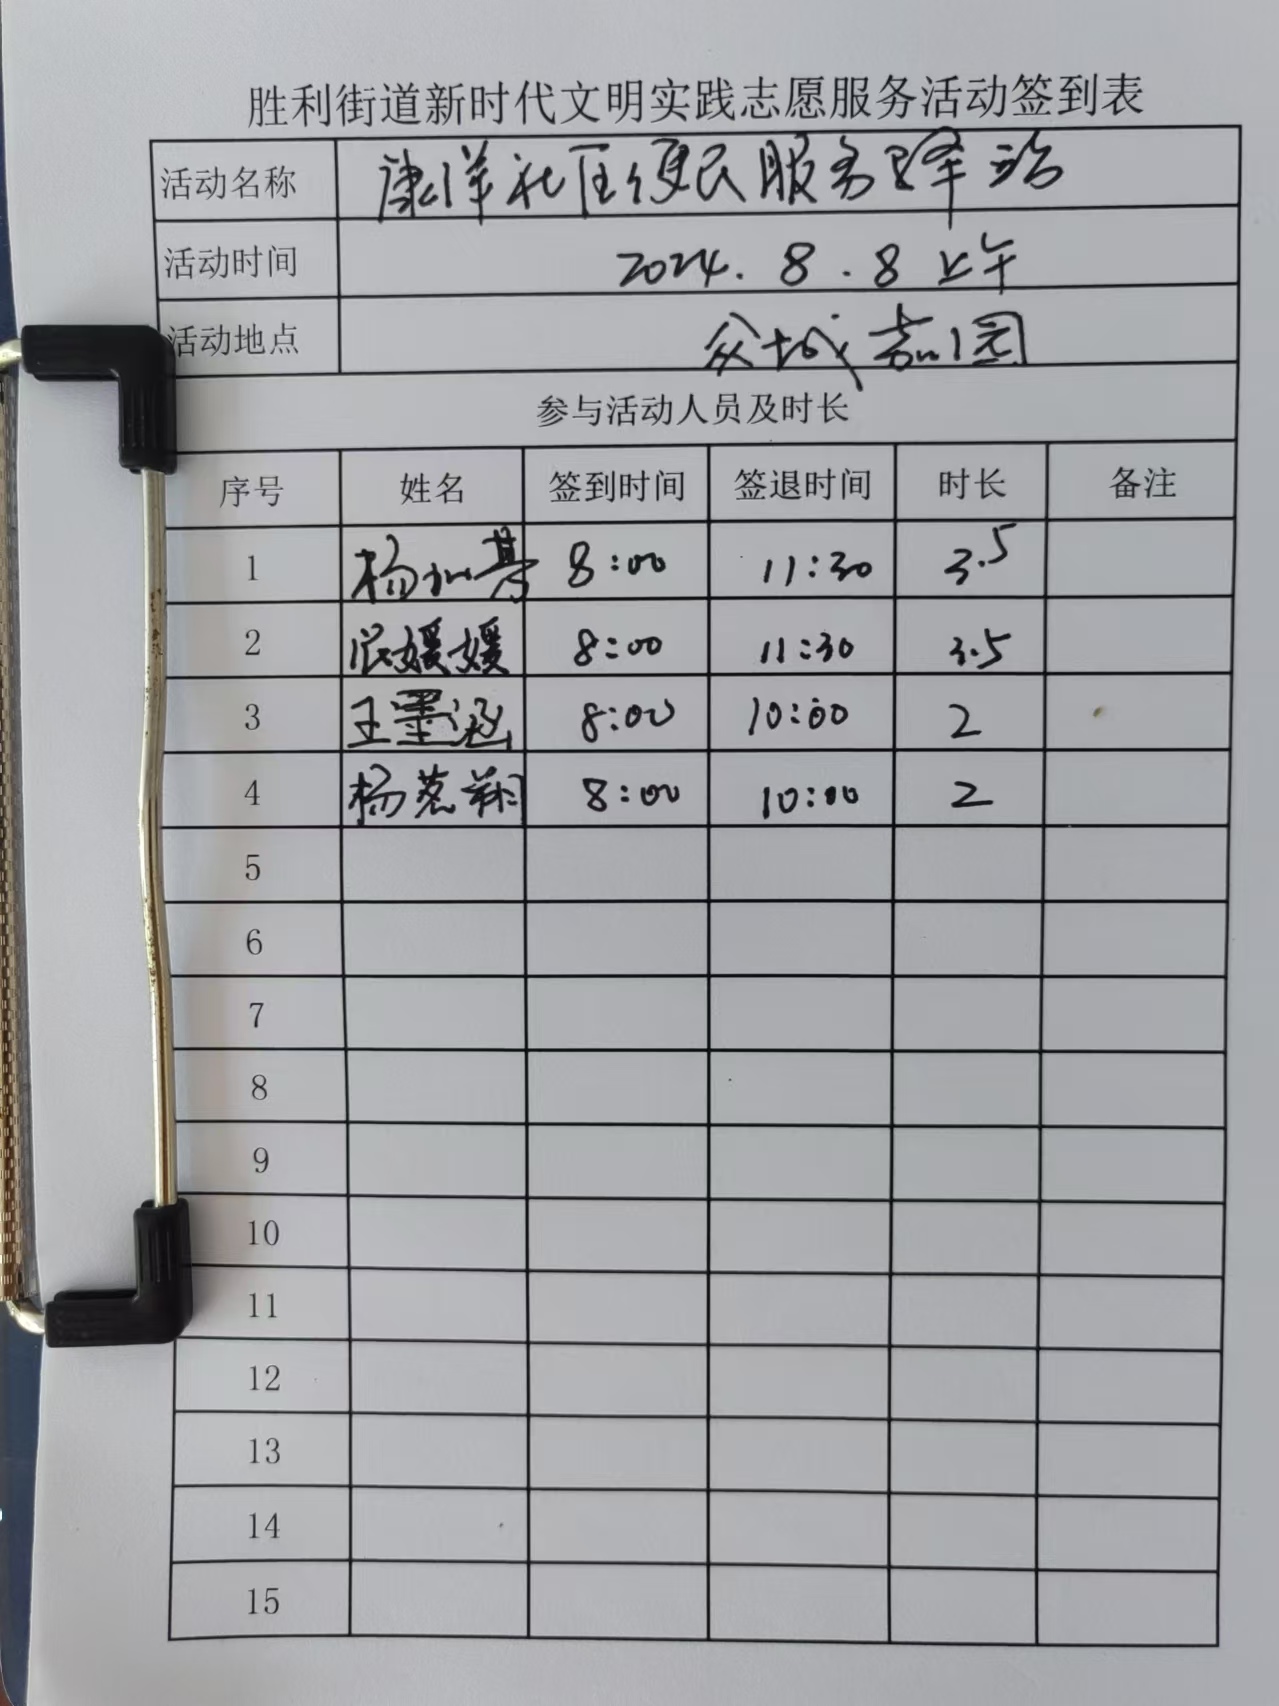 胜利街道新时代文明实践志愿服务活动签到表
活动名称 康洋社区便民服务驿站
活动时间 2024.8.8上午
活动地点 众城嘉园
参与活动人员及时长
序号 姓名 签到时间 签退时间 时长 备注
1 杨 8:00 11:30 3.5
2 媛媛 8:00 11:30 3.5
3 王墨涵 8:00 10:00 2
4 杨茗翔 8:00 10:00 2
5
6
7
8
9
10
11
12
13
14
15